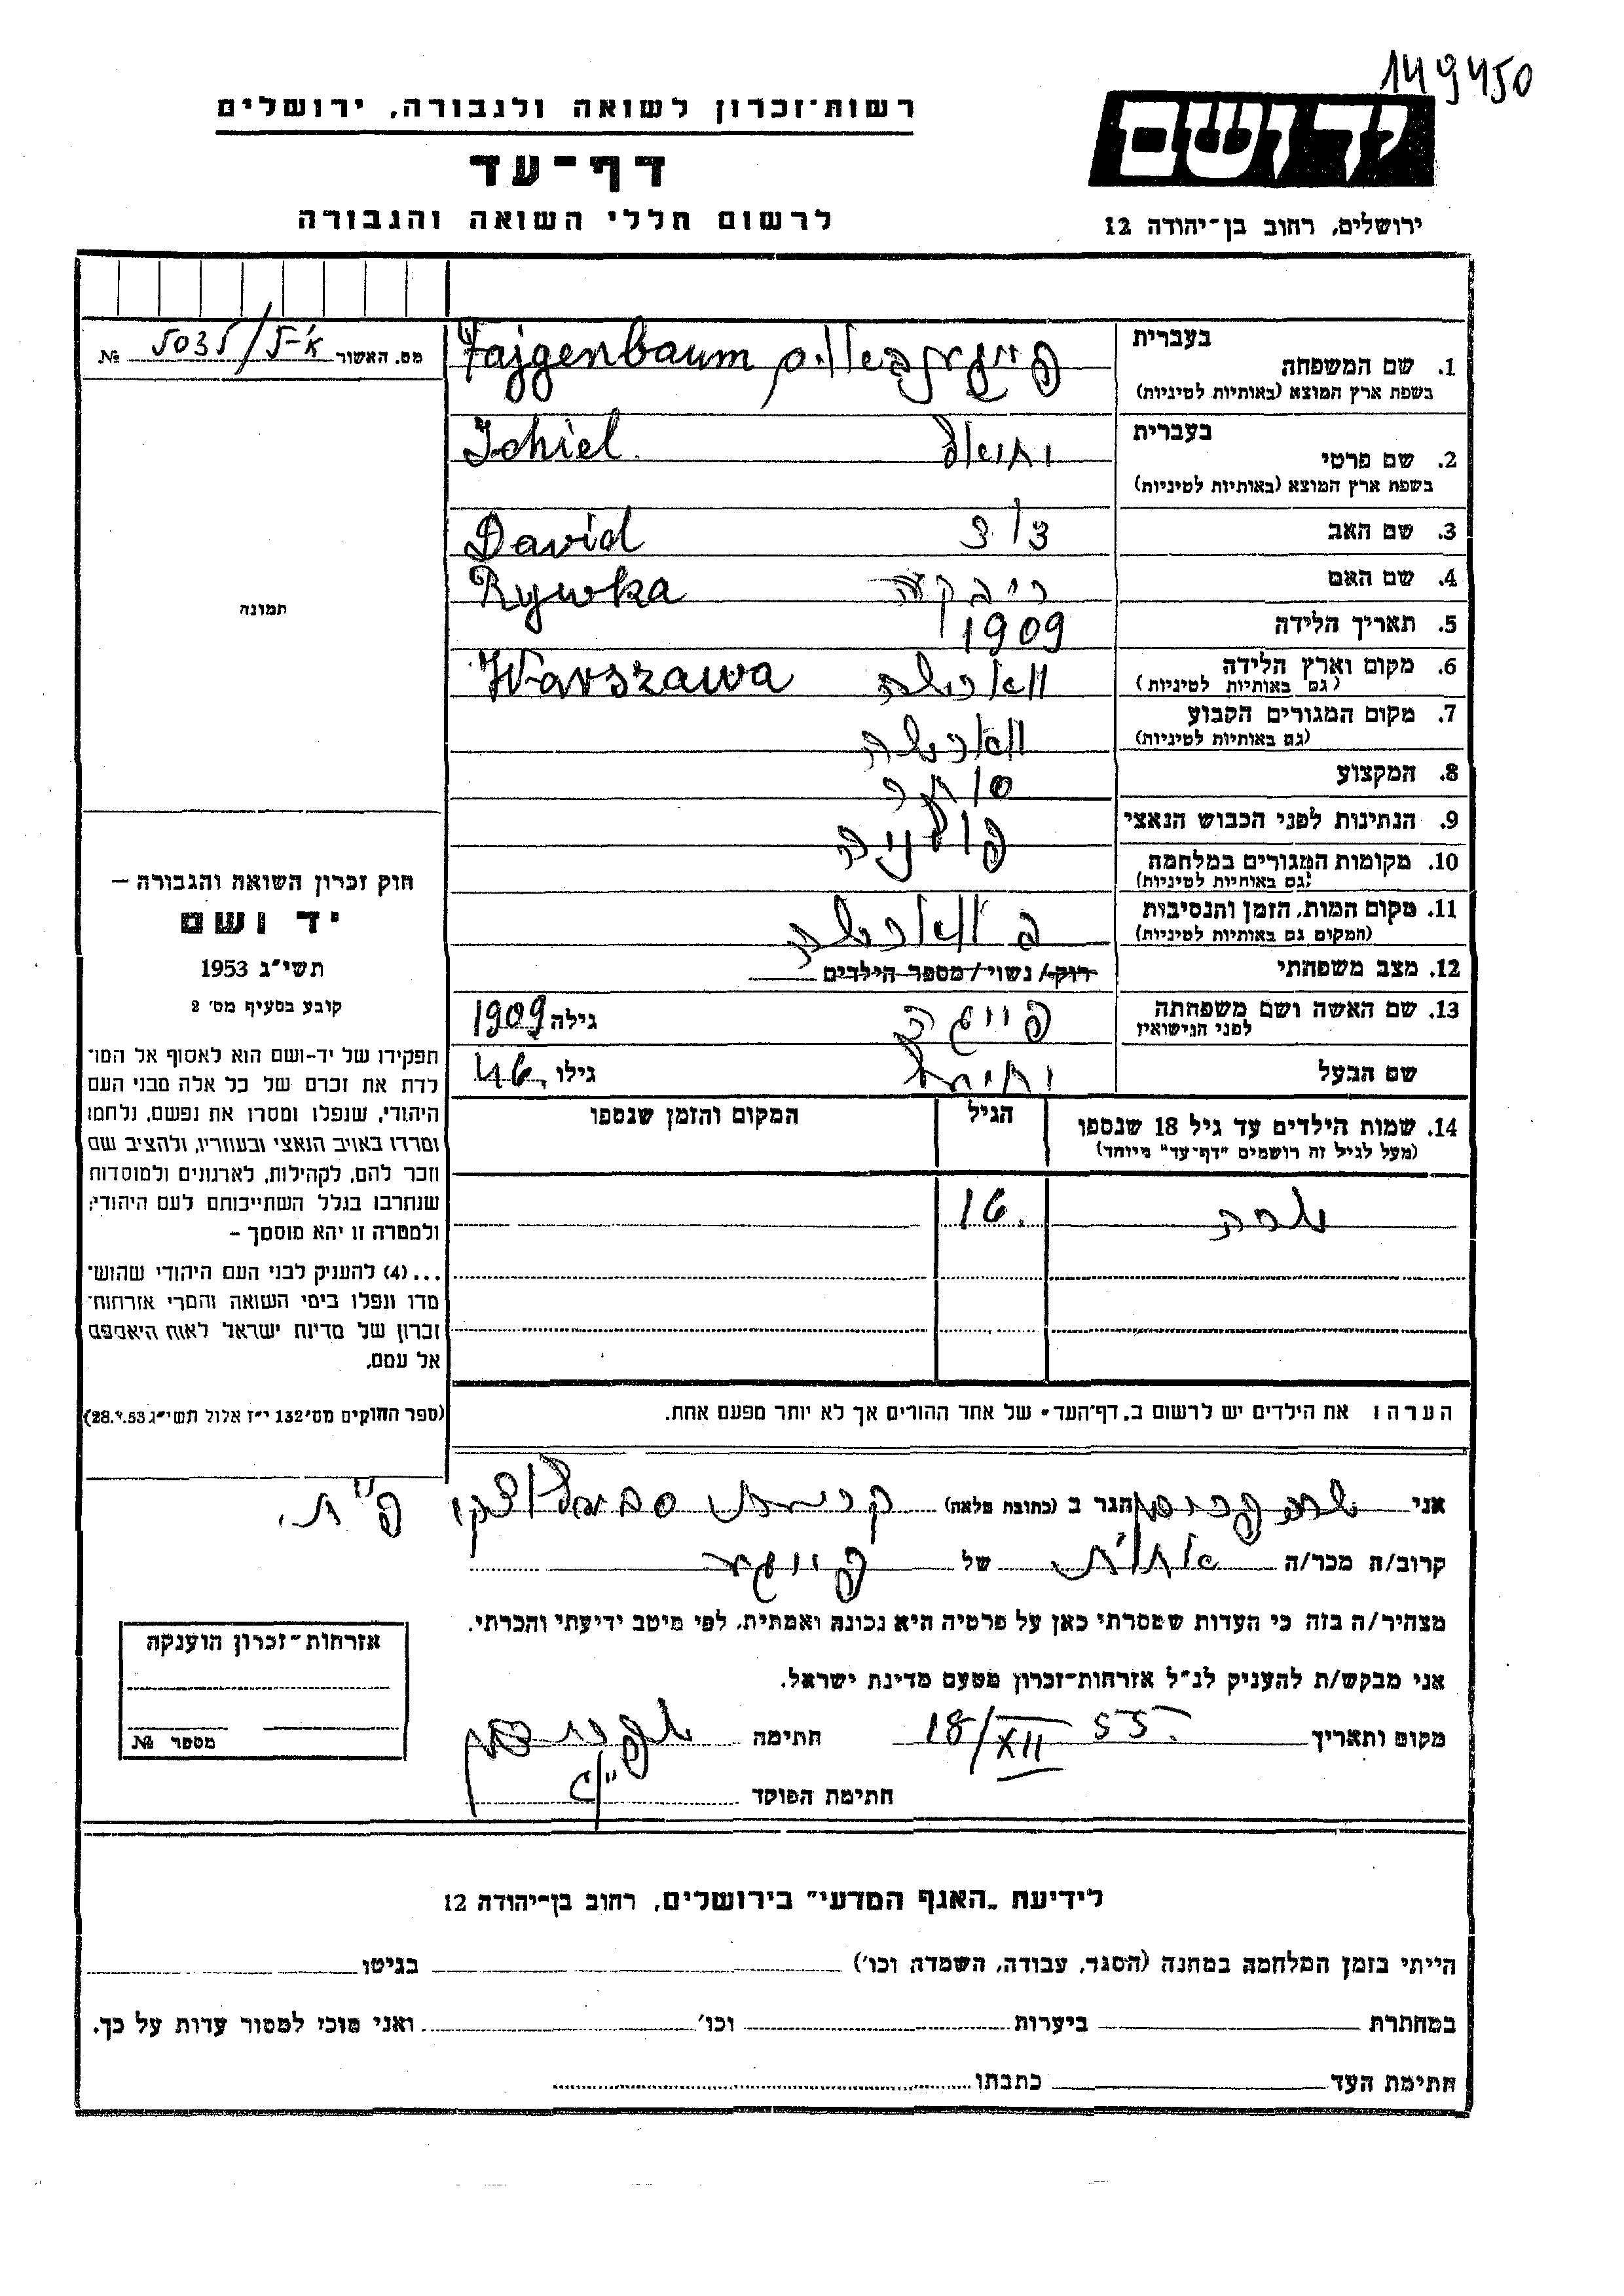 149450
רשות־זכרון לשואה ולגבורה, ירושלים
דף־עד
לרשום חללי השואה והגבורה
יד ושם
ירושלים, רחוב בן־יהודה 12
מס. האשור № 5035/א׳-5
תמונה
חוק זכרון השואה והגבורה —
יד ושם
תשי״ג 1953
קובע בסעיף מס׳ 2
תפקידו של יד-ושם הוא לאסוף אל המו־
לדת את זכרם של כל אלה מבני העם
היהודי, שנפלו ומסרו את נפשם, נלחמו
ומרדו באויב הנאצי ובעוזריו, ולהציב שם
וזכר להם, לקהילות, לארגונים ולמוסדות
שנחרבו בגלל השתייכותם לעם היהודי;
ולמטרה זו יהא מוסמך –
...(4) להעניק לבני העם היהודי שהוש־
מדו ונפלו בימי השואה והמרי אזרחות־
זכרון של מדינת ישראל לאות היאספם
אל עמם.
(ספר החוקים מס׳ 132 י״ז אלול תשי״ג 28.8.53)
בעברית
1. שם המשפחה פייגענבאום Fajgenbaum
בשפת ארץ המוצא (באותיות לטיניות)
בעברית
2. שם פרטי יחיאל Ichiel
בשפת ארץ המוצא (באותיות לטיניות)
3. שם האב דוד David
4. שם האם ריבקה Rywka
5. תאריך הלידה 1909
6. מקום וארץ הלידה ווארשה Warszawa
(גם באותיות לטיניות)
7. מקום המגורים הקבוע ווארשה
(גם באותיות לטיניות)
8. המקצוע סוחר
9. הנתינות לפני הכבוש הנאצי פולניה
10. מקומות המגורים במלחמה
(גם באותיות לטיניות)
11. מקום המות, הזמן והנסיבות בווארשה
(המקום גם באותיות לטיניות)
12. מצב משפחתי רווק/ נשוי/ מספר הילדים
13. שם האשה ושם משפחתה פייגה גילה 1909
לפני הנישואין
שם הבעל יחיאל גילו 46
14. שמות הילדים עד גיל 18 שנספו הגיל המקום והזמן שנספו
(מעל לגיל זה רושמים "דף־עד" מיוחד)
שרה 16
הערה: את הילדים יש לרשום ב„דף־העד" של אחד ההורים אך לא יותר מפעם אחת.
אני שרה הגר ב (כתובת מלאה) קרית פ״ת.
קרוב/ה מכר/ה אחות של פייגה
מצהיר/ה בזה כי העדות שמסרתי כאן על פרטיה היא נכונה ואמתית, לפי מיטב ידיעתי והכרתי.
אני מבקש/ת להעניק לנ״ל אזרחות־זכרון מטעם מדינת ישראל.
מקום ותאריך 18/XII 55. חתימה
חתימת הפוקד
אזרחות־זכרון הוענקה
מספר №
לידיעת „האגף המדעי" בירושלים, רחוב בן־יהודה 12
הייתי בזמן המלחמה במחנה (הסגר, עבודה, השמדה וכו׳) בגיטו
במחתרת ביערות וכו׳ ואני מוכן למסור עדות על כך.
חתימת העד כתבתו